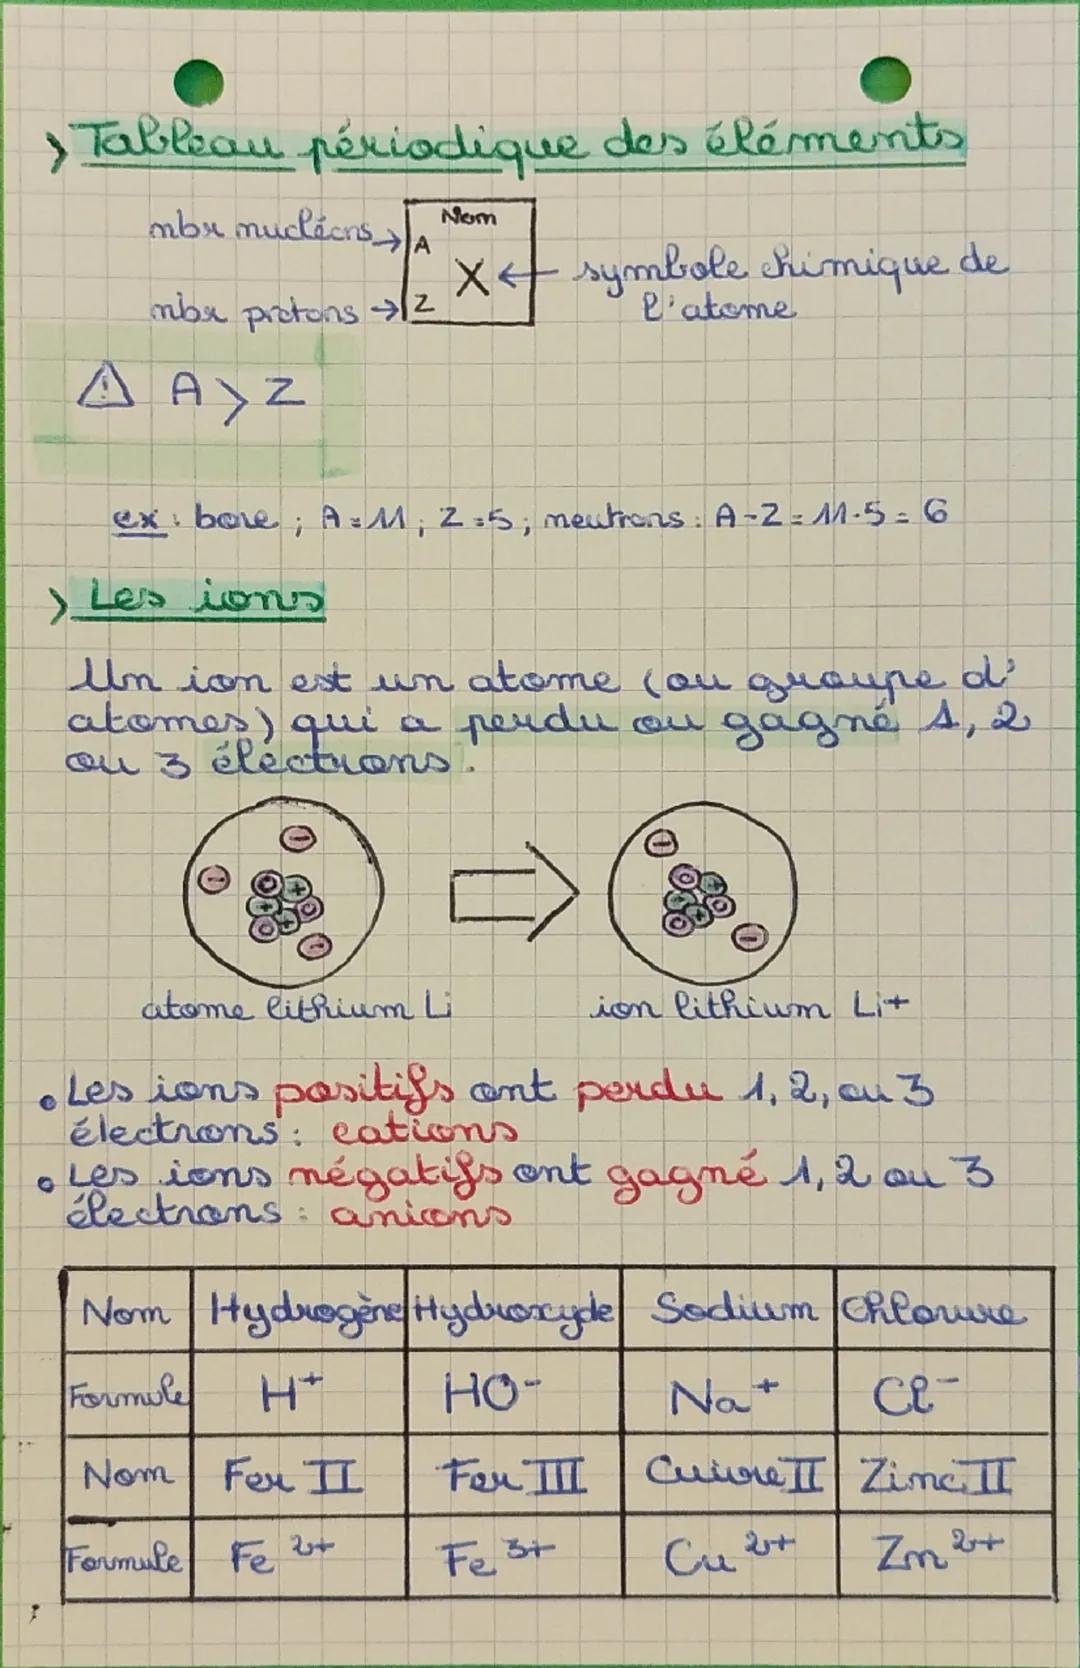 > Tableau périodique des éléments
Nom
nbr nucléons → A
X ← symbole chimique de
l'atome
nbr protons → Z
⚠ A > Z
ex : bore ; A = 11 ; Z = 5 ; neutrons : A - Z = 11 - 5 = 6
> Les ions
Un ion est un atome (ou groupe d'
atomes) qui a perdu ou gagné 1, 2
ou 3 électrons.
atome lithium Li
ion lithium Li+
• Les ions positifs ont perdu 1, 2, ou 3
électrons : cations
• Les ions négatifs ont gagné 1, 2 ou 3
électrons : anions
Nom Hydrogène Hydroxyde Sodium Chlorure
Formule H⁺ HO⁻ Na⁺ Cl⁻
Nom Fer II Fer III Cuivre II Zinc II
Formule Fe²⁺ Fe³⁺ Cu²⁺ Zn²⁺